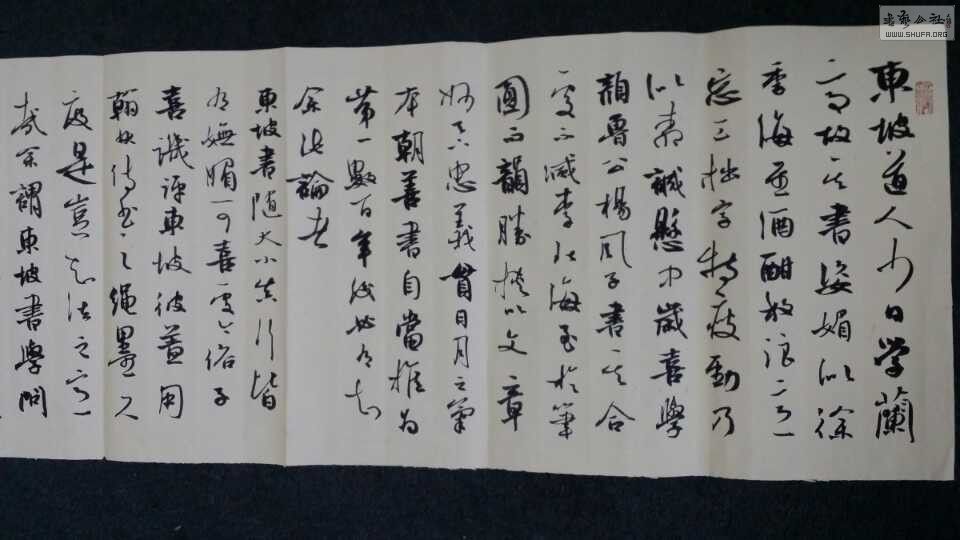 東坡道人少日学蘭
亭故其書姿媚似徐
季海至酒酣放浪意
忘工拙字特瘦勁乃
似柳誠懸中歲喜學
顏魯公楊风子書其合
處不減李北海至於筆
圓而韻勝挾以文章
妙天下忠義貫日月之氣
本朝善書自當推為
第一數百年後必有知
余此論者
東坡書随大小真行皆
有嫵媚可喜處今俗子
喜譏評東坡彼盖用
翰林侍书之繩墨尺
度是豈知法之意
哉余謂東坡書學問
書藝公社
WWW.SHUFA.ORG